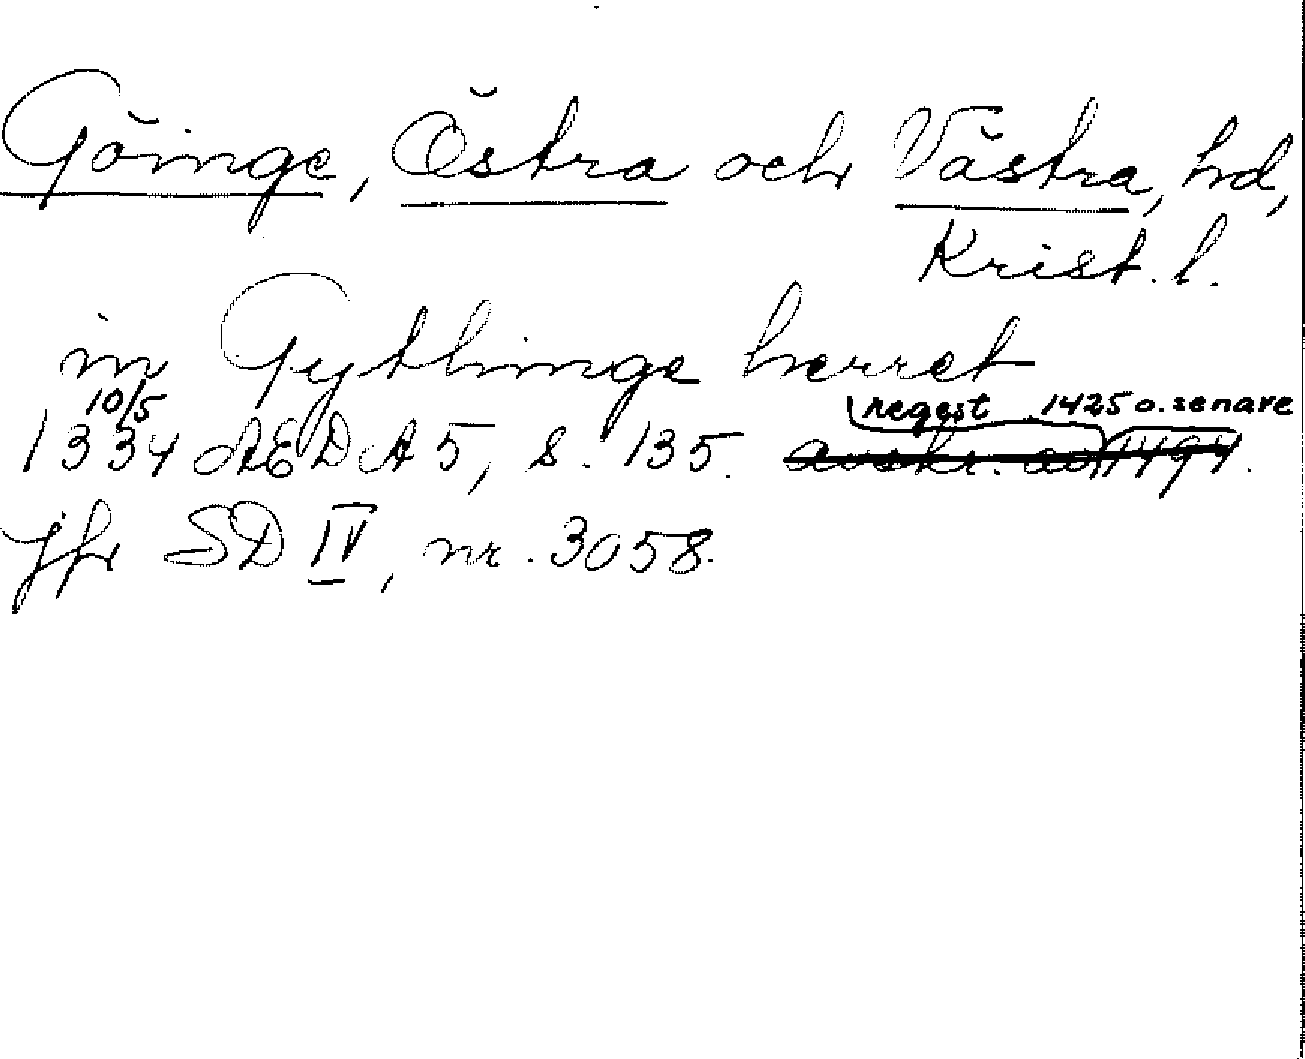 Göinge, Östra och Västra, hd,
Krist. l.
in Gythinge herret
10/5 regest 1425 o. senare
1334 ÆDA 5, s. 135. avskr. av 1494.
Jfr SD IV, nr. 3058.